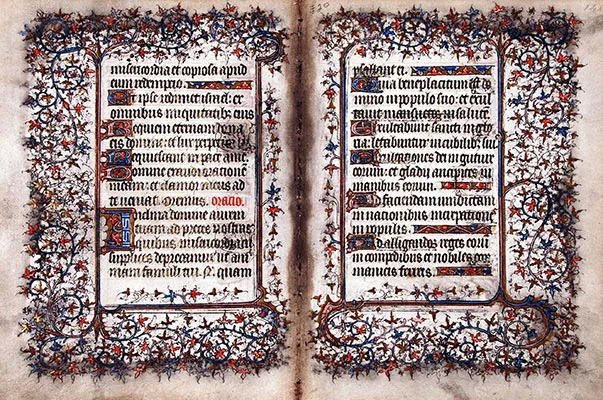 misericordia et copiosa apud
eum redemptio.
Et ipse redimet israel: ex
omnibus iniquitatibus eius
Requiem eternam dona
eis domine: et lux perpetua
Requiescant in pace amen.
domine exaudi orationem
meam: et clamor meus ad
te veniat. Oremus. Oratio.
Inclina domine aurem
tuam ad preces nostras
quibus misericordiam
supplices deprecamur: ut ani
mam famuli tui. N. quam
psallant ei.
Quia beneplacitum est do
mino in populo suo: et exal
tavit mansuetos in salute.
Exultabunt sancti in glo
ria: letabuntur in cubilibus suis
Exaltationes dei in guture
eorum: et gladii ancipites in
manibus eorum.
Ad faciendam vindictam
in nationibus increpationes
in populis.
Ad alligandos reges eorum
in compedibus et nobiles eorum
in manicis ferreis.